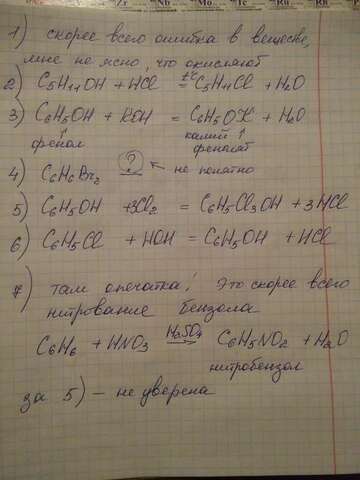 1) скорее всего ошибка в веществе
мне не ясно, что окисляют
2) C5H11OH + HCl t°C = C5H11Cl + H2O
3) C6H5OH + KOH = C6H5OK + H2O
↑ фенол калий ↑ фенолят
4) C6H6Br2 ? ← не понятно
5) C6H5OH + 3Cl2 = C6H5Cl3OH + 3HCl
6) C6H5Cl + HOH = C6H5OH + HCl
7) там опечатка! Это скорее всего
нитрование бензола
C6H6 + HNO3 H2SO4 → C6H5NO2 + H2O
нитробензол
за 5) – не уверена